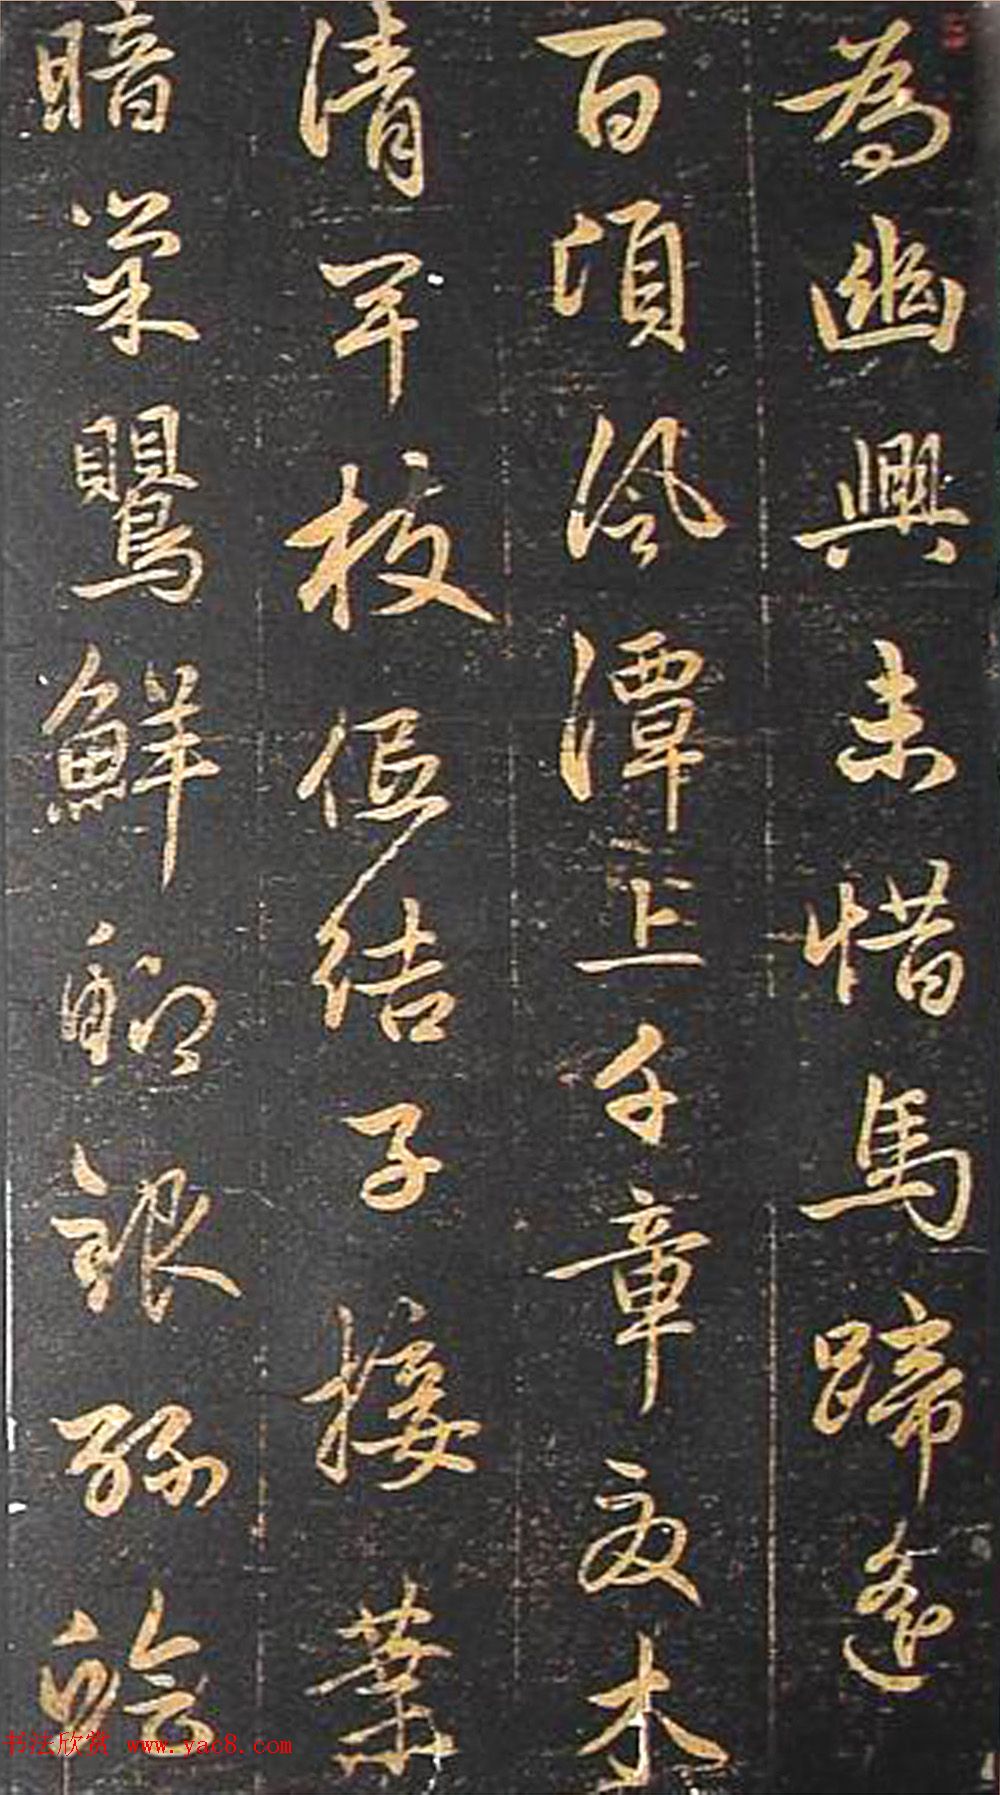 為幽興未惜馬蹄遙
百頃風潭上千章夏木
清卑枝低結子接葉
暗巢鸎鮮鯽銀絲鱠
书法欣赏 www.yac8.com